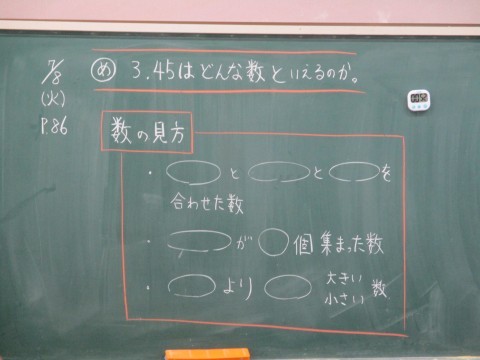 7/8
(火)
P.86
め 3.45はどんな数といえるのか。
数の見方
・ と と を
合わせた数
・ が 個集まった数
・ より 大きい 数
小さい